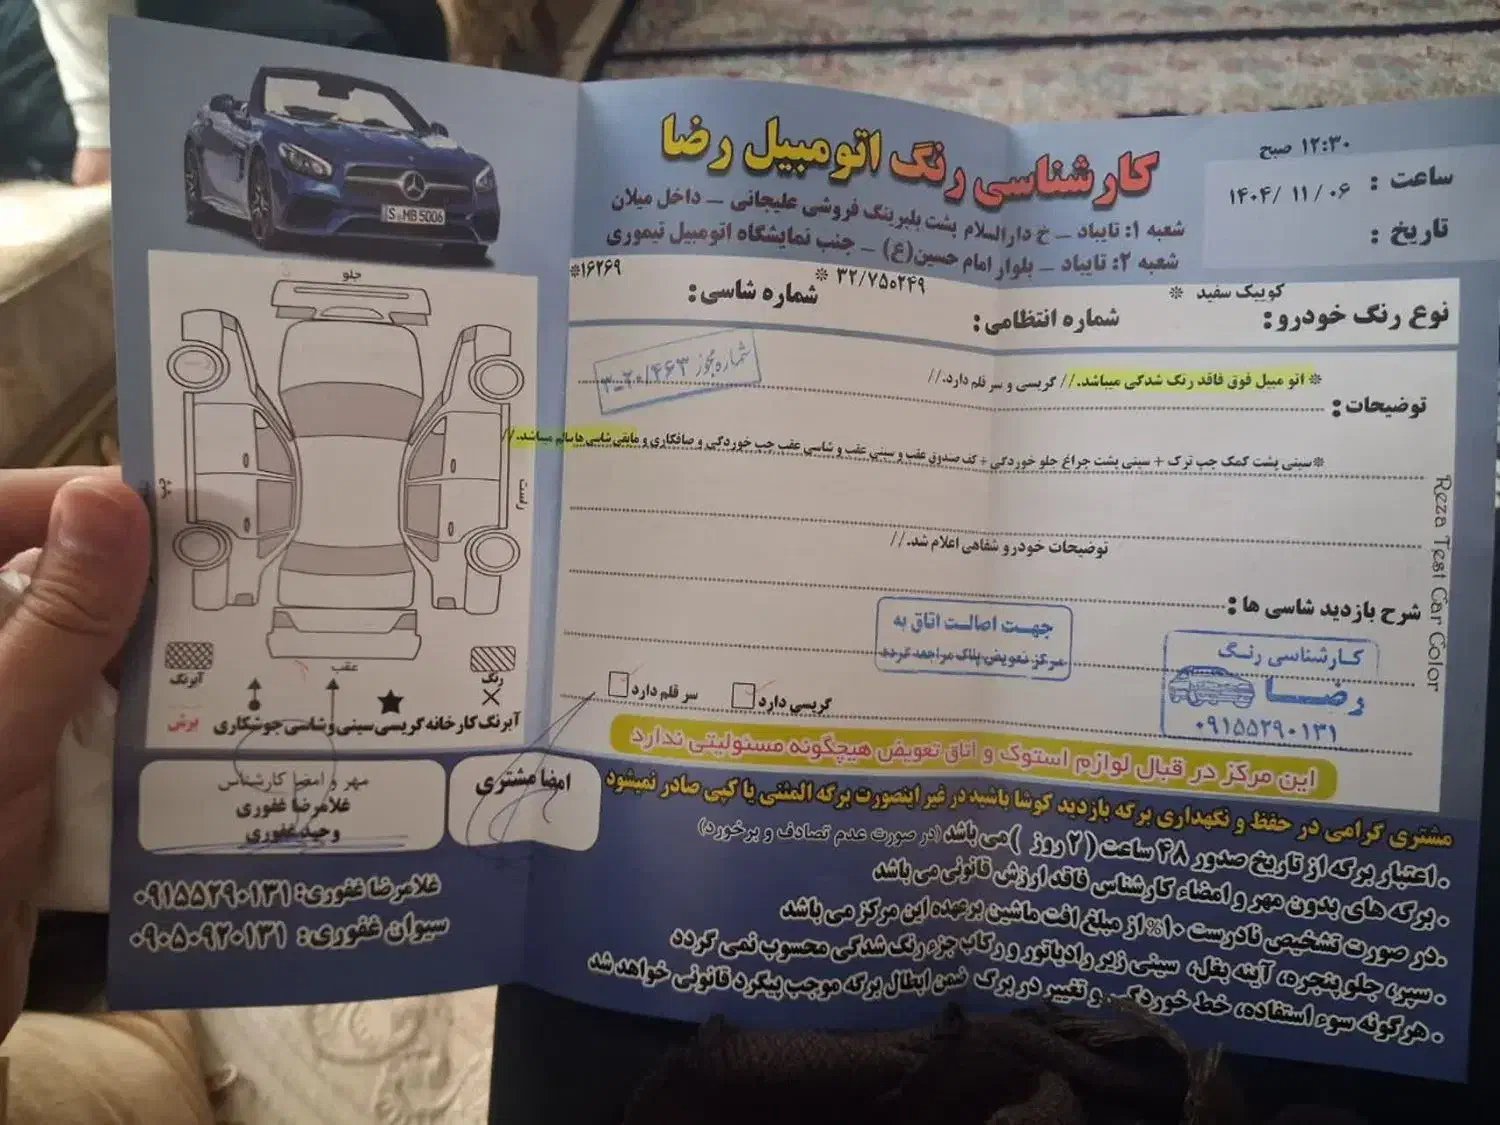 کارشناسی رنگ اتومبیل رضا
شعبه 1: تایباد _ خ دارالسلام پشت بلبرینگ فروشی علیجانی _ داخل میلان
شعبه 2: تایباد _ بلوار امام حسین(ع) _ جنب نمایشگاه اتومبیل تیموری
ساعت : ۱۲:۳۰ صبح
تاریخ : ۱۴۰۴/ ۱۱ / ۰۶
نوع رنگ خودرو: کوییک سفید *
شماره انتظامی: ۳۲/۷۵۰۲۴۹ *
شماره شاسی: ۱۶۲۶۹*
شماره مجوز
توضیحات: * اتو مبیل فوق فاقد رنگ شدگی میباشد.// گریسی و سر قلم دارد.//
*سینی پشت کمک جپ ترک + سینی پشت چراغ جلو خوردگی + کف صندوق عقب و سینی عقب و شاسی عقب جپ خوردگی و صافکاری و مابقی شاسی ها سالم میباشد.//
توضیحات خودرو شفاهی اعلام شد.//
شرح بازدید شاسی ها :
جهت اصالت اتاق به
مرکز تعویض پلاک مراجعه گردد
کارشناسی رنگ
رضا
۰۹۱۵۵۲۹۰۱۳۱
گریسی دارد
سر قلم دارد
این مرکز در قبال لوازم استوک و اتاق تعویض هیچگونه مسئولیتی ندارد
Reza Test Car Color
S MB 5006
جلو
راست
عقب
رنگ
آبرنگ
آبرنگ کارخانه گریسی سینی و شاسی جوشکاری برش
امضا مشتری
مهر و امضا کارشناس
غلامرضا غفوری
وحید غفوری
غلامرضا غفوری: ۰۹۱۵۵۲۹۰۱۳۱
سیوان غفوری: ۰۹۰۵۰۹۲۰۱۳۱
مشتری گرامی در حفظ و نگهداری برگه بازدید کوشا باشید در غیر اینصورت برگه المثنی یا کپی صادر نمیشود
. اعتبار برگه از تاریخ صدور ۴۸ ساعت (۲ روز ) می باشد (در صورت عدم تصادف و برخورد)
. برگه های بدون مهر و امضاء کارشناس فاقد ارزش قانونی می باشد
.در صورت تشخیص نادرست ۱۰% از مبلغ افت ماشین برعهده این مرکز می باشد
. سپر، جلو پنجره، آینه بغل، سینی زیر رادیاتور و رکاب جزء رنگ شدگی محسوب نمی گردد
. هرگونه سوء استفاده، خط خوردگی و تغییر در برگ ضمن ابطال برگه موجب پیگرد قانونی خواهد شد